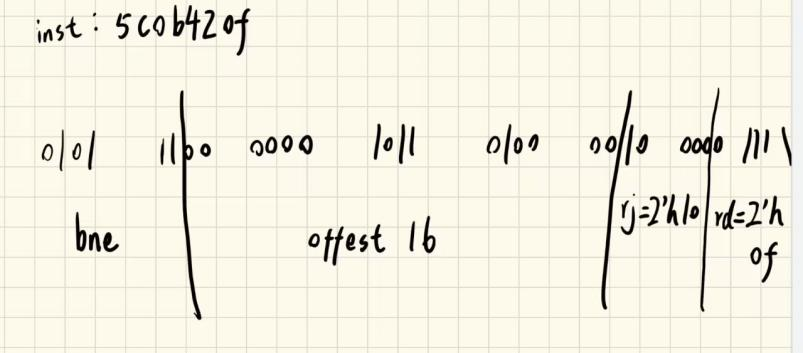 inst: 5c0b420f
0101 1100 0000 1011 0100 0010 0000 1111
bne offest 16 rj=2'h10 rd=2'h
of